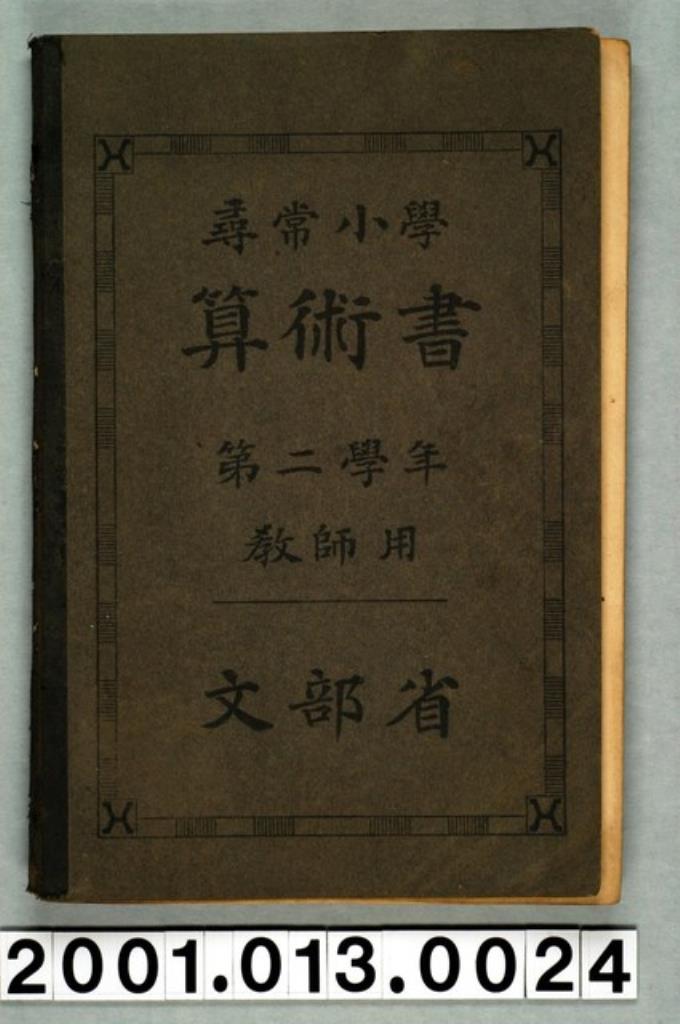 尋常小學
算術書
第二學年
敎師用
文部省
2001.013.0024